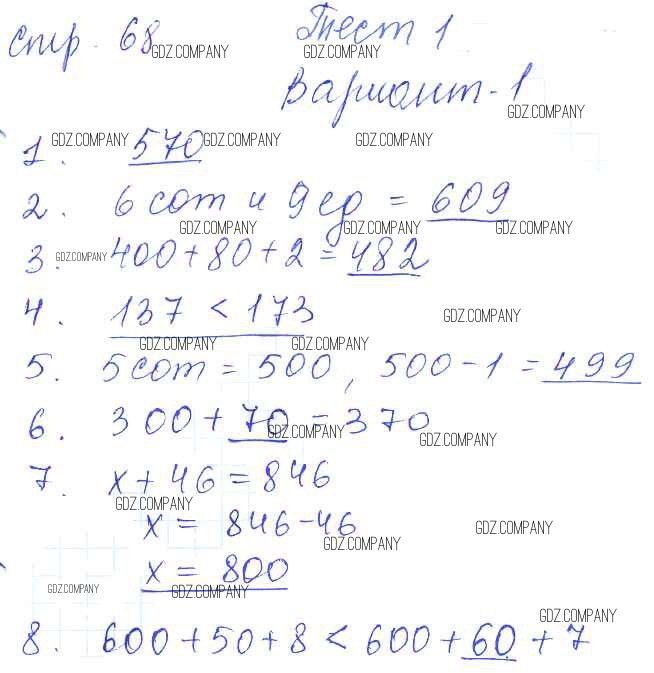 стр. 68 GDZ.COMPANY Тест 1 GDZ.COMPANY
Вариант-1 GDZ.COMPANY
1. GDZ.COMPANY 570 GDZ.COMPANY GDZ.COMPANY
2. 6 сот и 9 ед = 609
GDZ.COMPANY GDZ.COMPANY GDZ.COMPANY
3. GDZ.COMPANY 400+80+2=482
4. 137 < 173 GDZ.COMPANY
GDZ.COMPANY GDZ.COMPANY
5. 5 сот = 500, 500-1=499
6. 300+70=370
GDZ.COMPANY GDZ.COMPANY
7. x+46=846
GDZ.COMPANY
x = 846-46 GDZ.COMPANY
GDZ.COMPANY
x = 800
GDZ.COMPANY GDZ.COMPANY
GDZ.COMPANY
8. 600+50+8 < 600+60+7